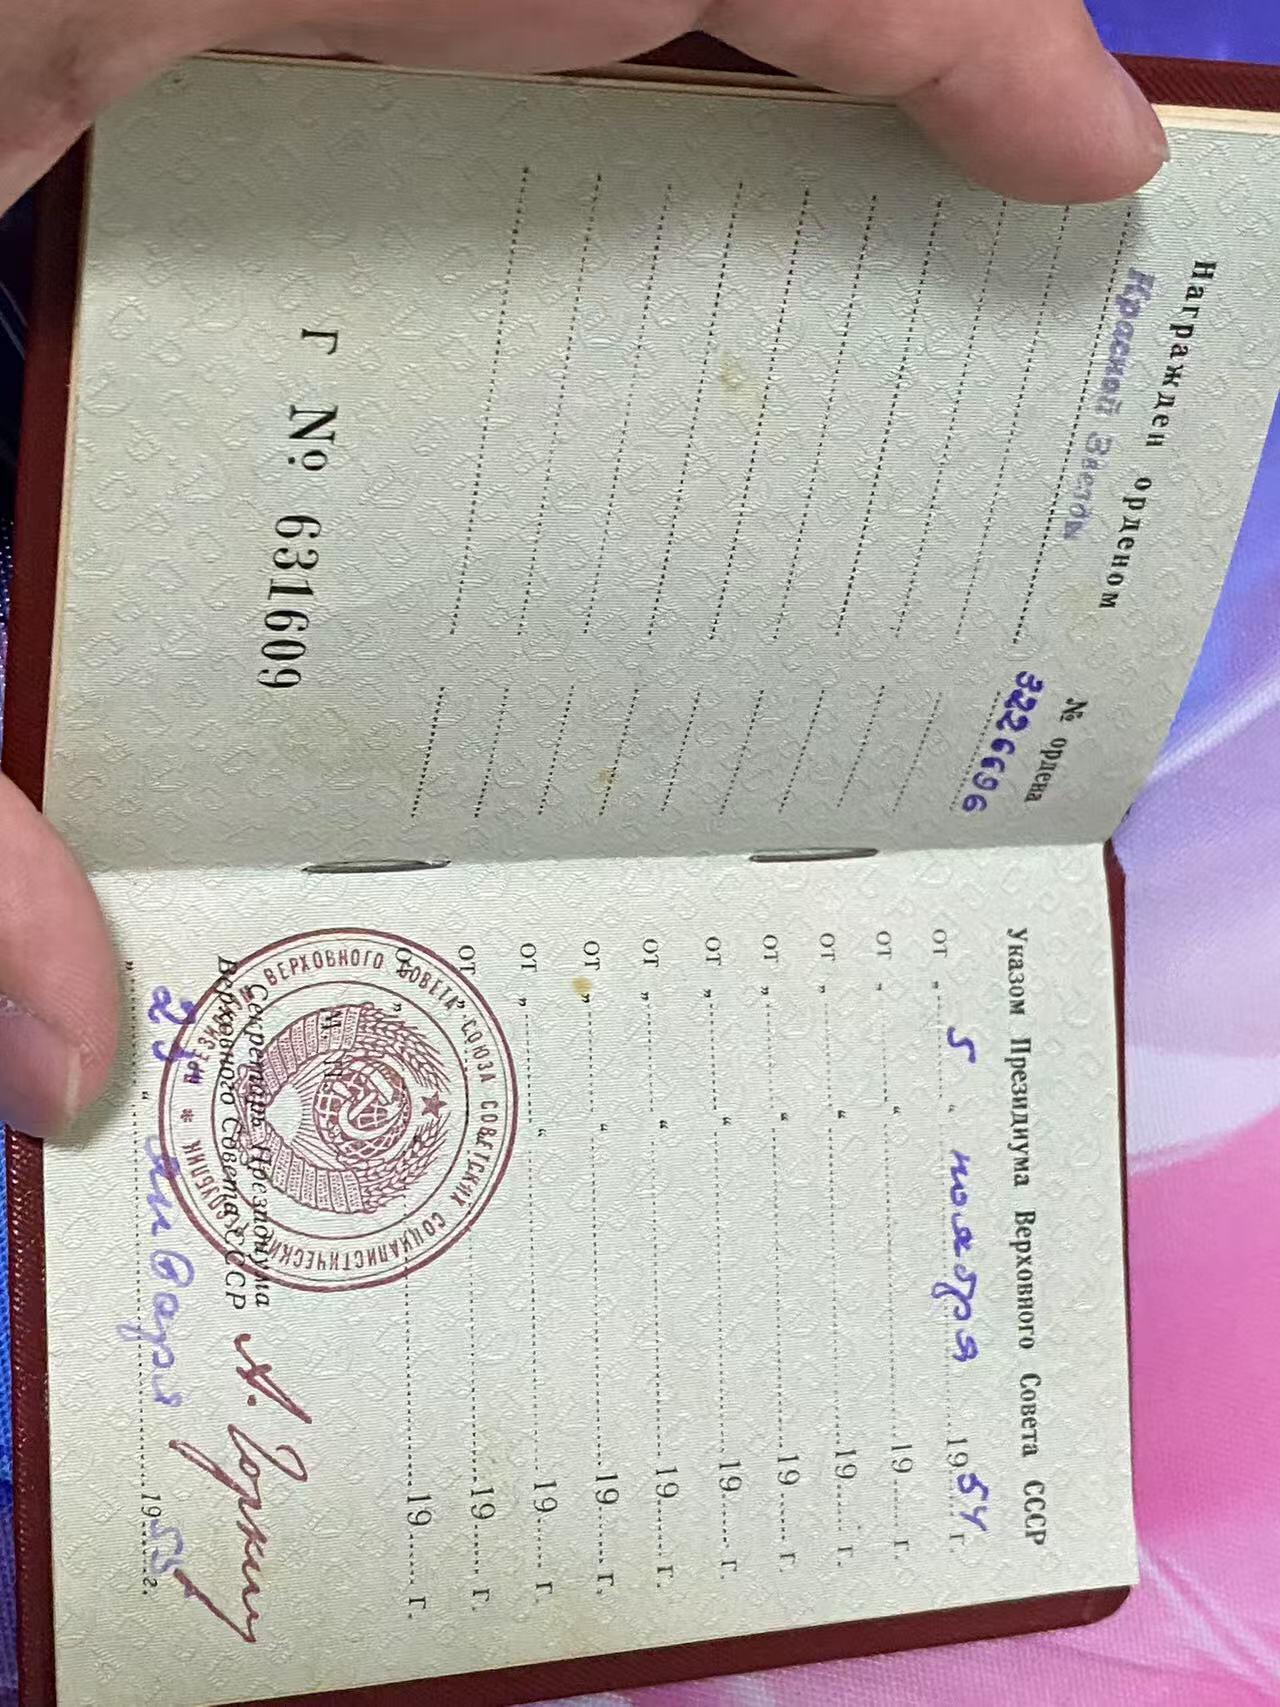 Награжден орденом
№ ордена
Красной Звезды
3226696
Г № 631609
Указом Президиума Верховного Совета СССР
от „ 5 “ ноября 1954 г.
от „ “ 19 г.
от „ “ 19 г.
от „ “ 19 г.
от „ “ 19 г.
от „ “ 19 г.
от „ “ 19 г.
от „ “ 19 г.
от „ 19 г.
от „ 19 г.
М. П.
ПРЕЗИДИУМ ВЕРХОВНОГО СОВЕТА СОЮЗА СОВЕТСКИХ СОЦИАЛИСТИЧЕСКИХ РЕСПУБЛИК *
Секретарь Президиума
Верховного Совета СССР А. Горкин
„ “ января 1955 г.